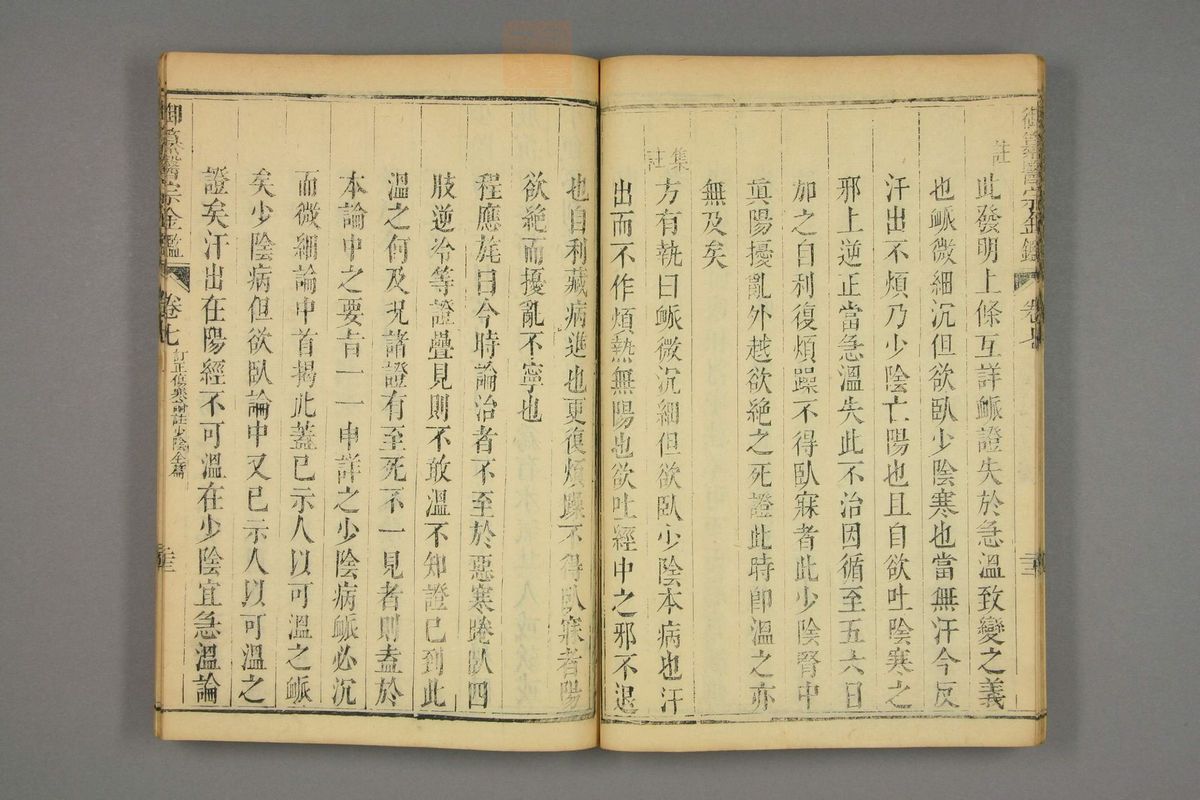 御纂醫宗金鑑
卷七
註
此發明上條互詳脈證失於急溫致變之義
也脈微細沉但欲臥少陰寒也當無汗今反
汗出不煩乃少陰亡陽也且自欲吐陰寒之
邪上逆正當急溫失此不治因循至五六日
加之自利復煩躁不得臥寐者此少陰腎中
眞陽擾亂外越欲絕之死證此時卽溫之亦
無及矣
集註
方有執曰脈微沉細但欲臥少陰本病也汗
出而不作煩熱無陽也欲吐經中之邪不退
也自利藏病進也更復煩躁不得臥寐者陽
欲絕而擾亂不寧也
程應旄曰今時論治者不至於惡寒踡臥四
肢逆冷等證疊見則不敢溫不知證已到此
溫之何及况諸證有至死不一見者則盍於
本論中之要旨一一申詳之少陰病脈必沉
而微細論中首揭此蓋已示人以可溫之脈
矣少陰病但欲臥論中又已示人以可溫之
證矣汗出在陽經不可溫在少陰宜急溫論
御纂醫宗金鑑
卷七
訂正傷寒論註少陰全篇